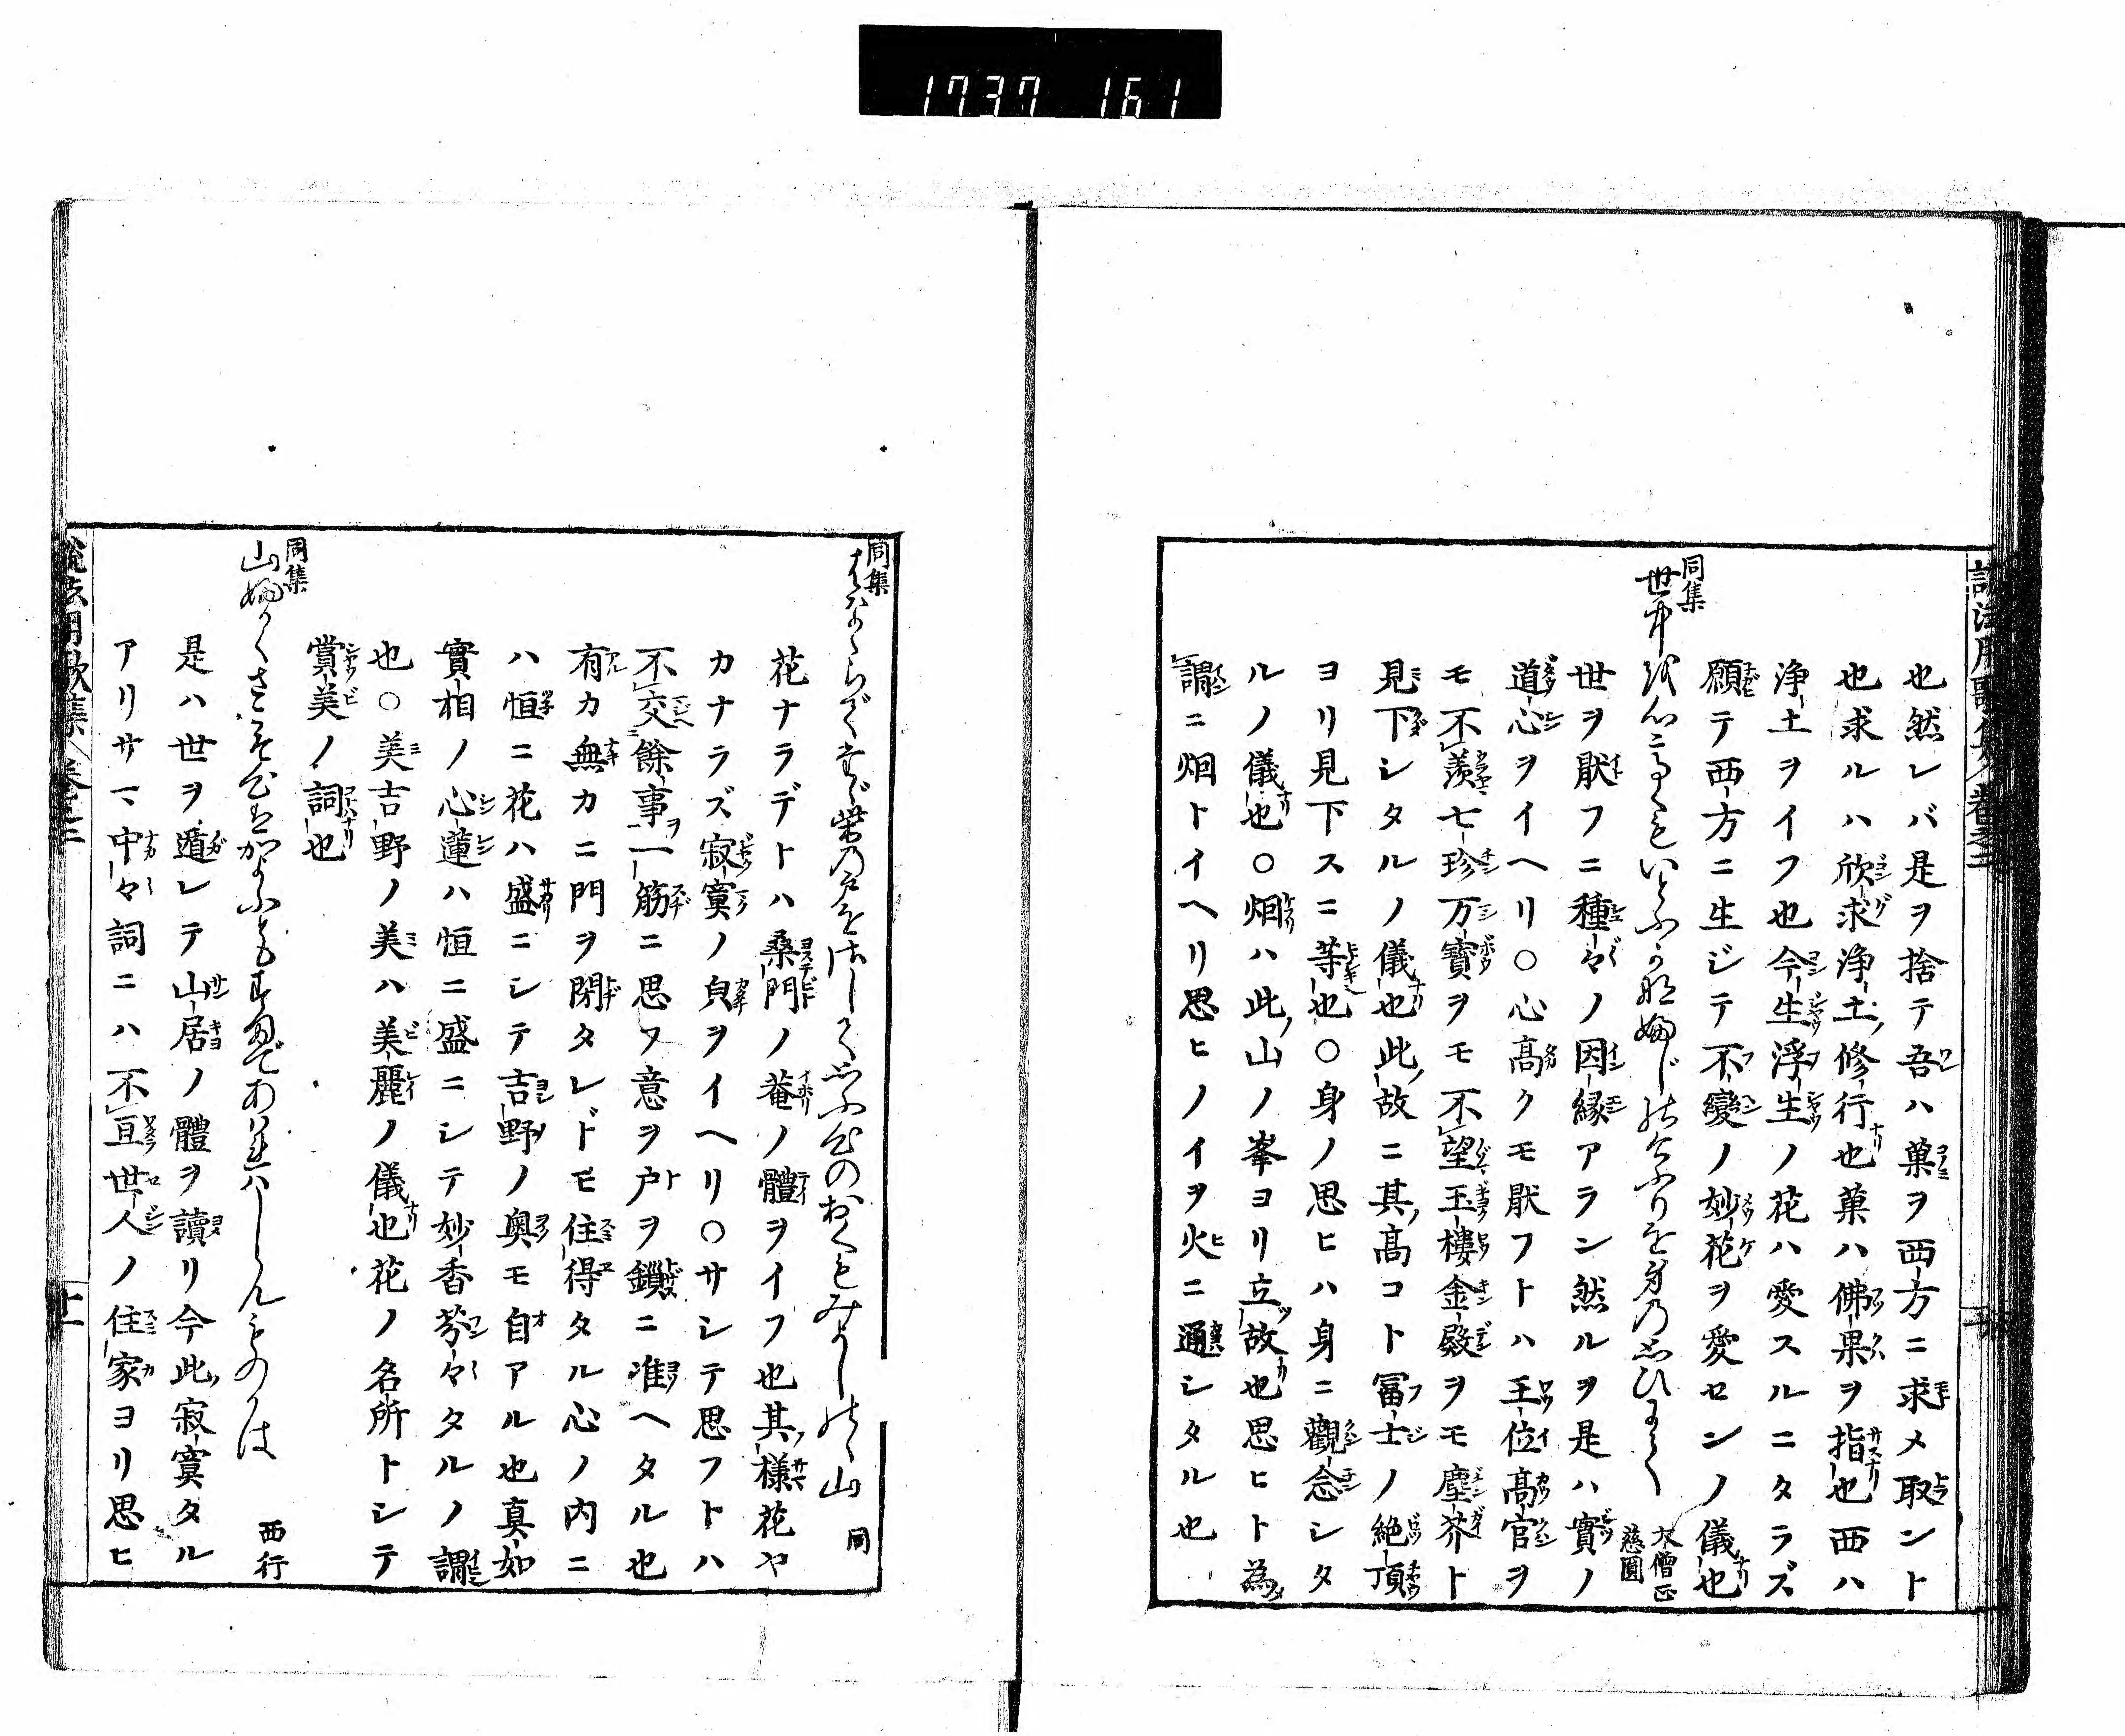 1737 161
也然レバ是ヲ捨テ吾ハ菓ヲ西方ニ求メ取ント
也求ルハ欣求浄土ノ修行也菓ハ佛果ヲ指也西ハ
浄土ヲイフ也今生浮生ノ花ハ愛スルニタラズ
願テ西方ニ生ジテ不變ノ妙花ヲ愛センノ儀也
同集
世中を心高くもいとふかな婦じのけふりを身の思ひにて
大僧正
慈圓
世ヲ厭フニ種々ノ因縁アラン然ルヲ是ハ實ノ
道心ヲイヘリ○心高クモ厭フトハ王位高官ヲ
モ不羨七珍万寶ヲモ不望玉樓金殿ヲモ塵芥ト
見下シタルノ儀也此故ニ其高コト冨士ノ絶頂
ヨリ見下スニ等也○身ノ思ヒハ身ニ觀念シタ
ルノ儀也○烟ハ此山ノ峯ヨリ立故也思ヒト為
謂ニ烟トイヘリ思ヒノイヲ火ニ通シタル也
同集
花ならでたゞ柴の戸をさして思ふ心のおくもみよしのゝ山
同
花ナラデトハ桑門ノ菴ノ體ヲイフ也其様花ヤ
カナラズ寂寞ノ皃ヲイヘリ○サシテ思フトハ
不交餘事一筋ニ思フ意ヲ戸ヲ鎖ニ准ヘタル也
有カ無カニ門ヲ閉タレドモ住得タル心ノ内ニ
ハ恒ニ花ハ盛ニシテ吉野ノ奥モ自アル也真如
實相ノ心蓮ハ恒ニ盛ニシテ妙香芬々タルノ謂
也○美吉野ノ美ハ美麗ノ儀也花ノ名所トシテ
賞美ノ詞也
同集
山婦かくさこそ心はかよふともすまであはれはしらんものかは
西行
是ハ世ヲ遁レテ山居ノ體ヲ讀リ今此寂寞タル
アリサマ中々詞ニハ不亘世人ノ住家ヨリ思ヒ
説法用歌集 巻之二